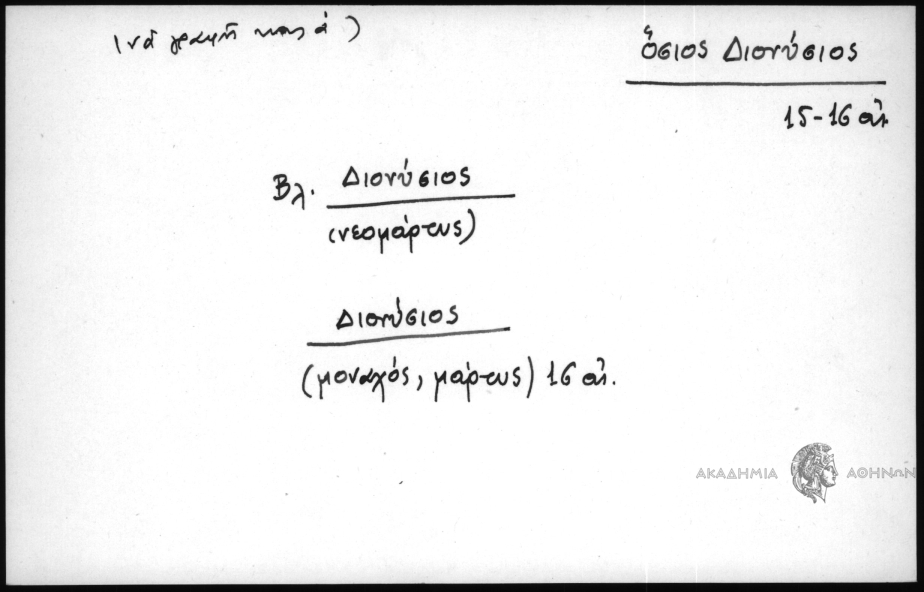 (νὰ γραφῆ καὶ ἀ)
ὅσιος Διονύσιος
15-16 αἰ.
Βλ. Διονύσιος
(νεομάρτυς)
Διονύσιος
(μοναχός, μάρτυς) 16 αἰ.
ΑΚΑΔΗΜΙΑ ΑΘΗΝΩΝ